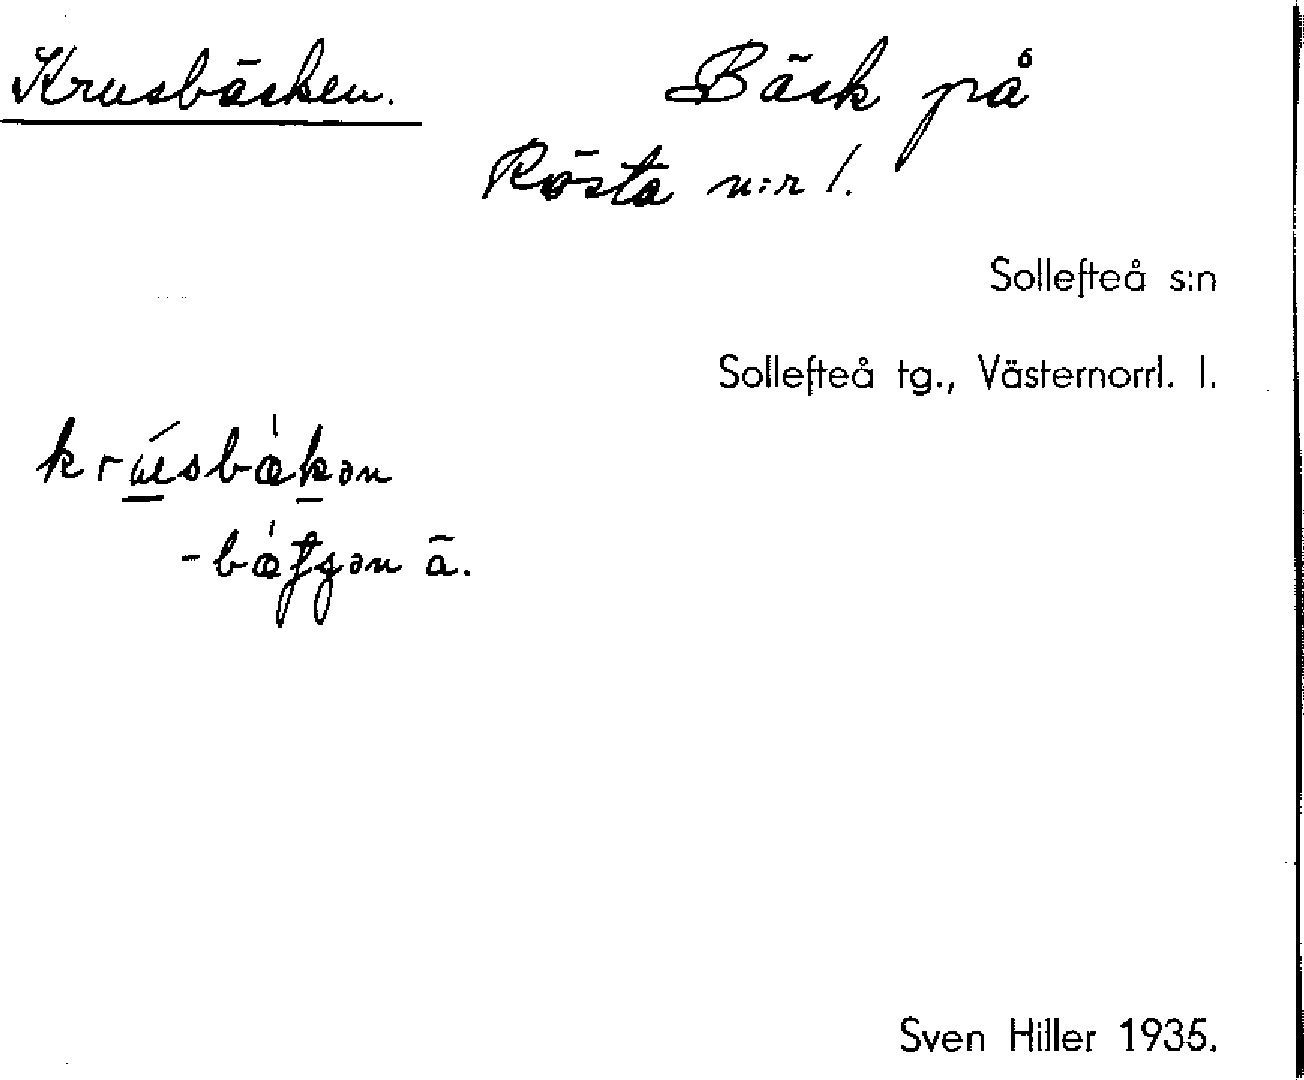 Krusbäcken. Bäck på
Rösta n:r 1.
Sollefteå s:n
Sollefteå tg., Västernorrl. l.
ä.
Sven Hiller 1935.